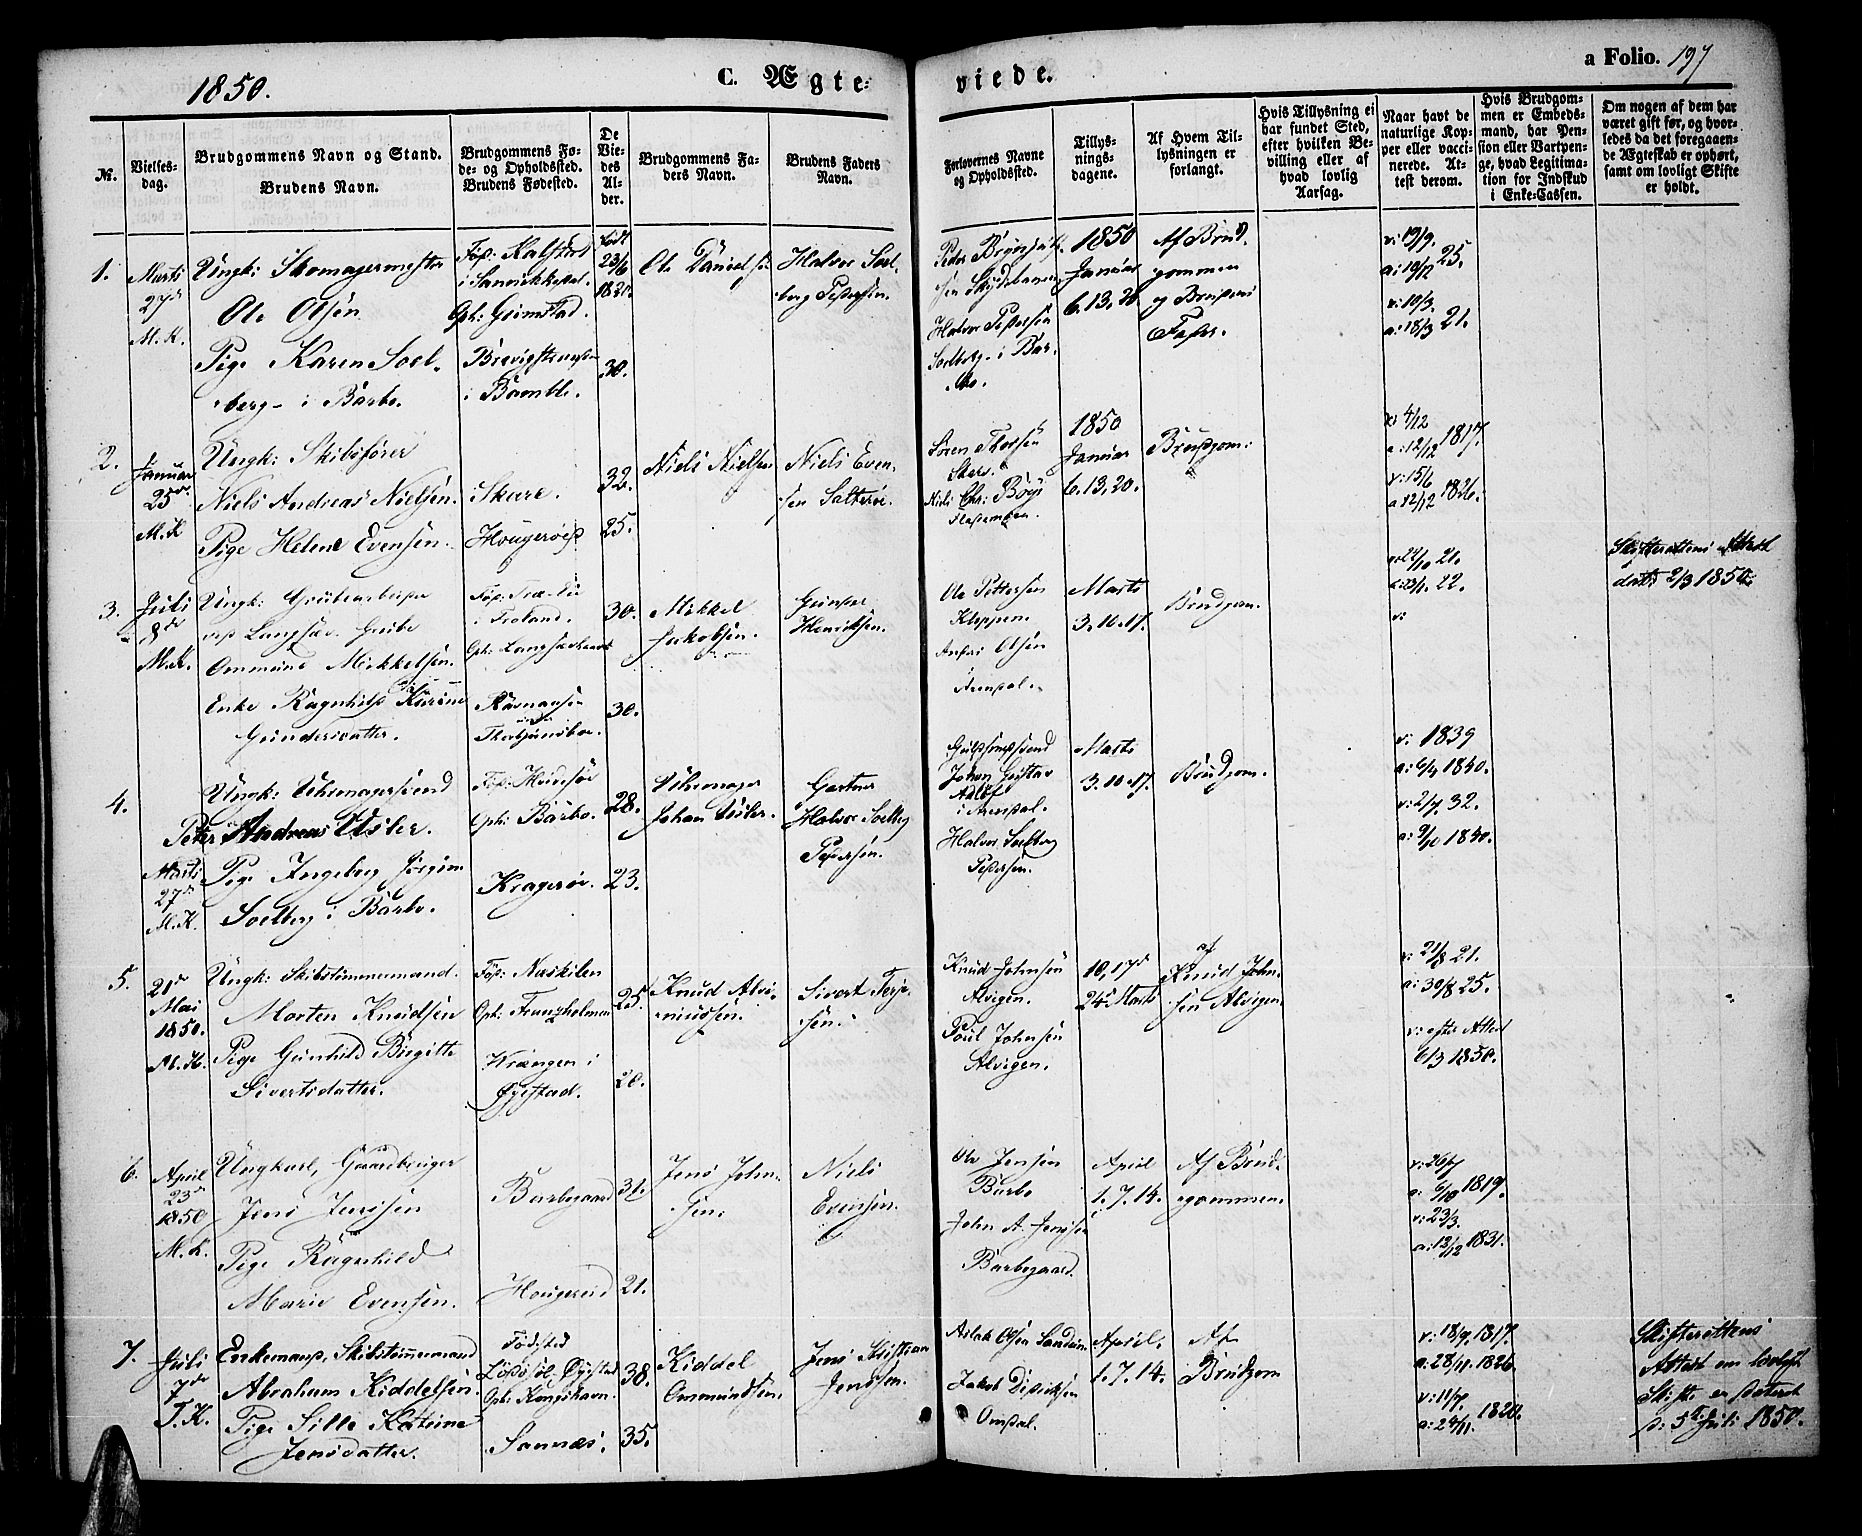 1850.
C. Ægte-
viede.
a Folio. 197
№.
Vielses-
dag.
Brudgommens Navn og Stand.
Brudens Navn.
Brudgommens Fø-
de- og Opholdssted.
Brudens Fødested.
De
Vie-
des
Al-
der.
Brudgommens Fa-
ders Navn.
Brudens Faders
Navn.
Forlovernes Navne
og Opholdssted.
Tillys-
nings-
dagene.
Af Hvem Til-
lysningen er
forlangt.
Hvis Tillysning ei
har fundet Sted,
efter hvilken Be-
villing eller af
hvad lovlig
Aarsag.
Naar havt de
naturlige Kop-
per eller vacci-
nerede. At-
test derom.
Hvis Brudgom-
men er Embeds-
mand, har Pen-
sion eller Vartpen-
ge, hvad Legitima-
tion for Indskud
i Enke-Cassen.
Om nogen af dem har
været gift før, og hvor-
ledes da det foregaaen-
de Ægteskab er ophørt,
samt om lovligt Skifte
er holdt.
1.
Marts
27de
M.K.
Ungk: Skomagermester
Ole Olsen
Pige Karen Soel-
berg i Barbo.
Føds:
i Sannikkedal.
Oph: Grimstad.
i Bamble.
født
23/6
30.
Ole Danielsen
Halvor Soel-
berg Pedersen.
Halvor Pedersen
Soelberg i Bar-
bo.
1850
Januar
6. 13. 20
Af Brud-
gommen
og Brudens
Fader.
v: 19/9.
a: 19/12 25.
v: 19/3.
a: 18/3 21.
2.
Januar
25de
M.K
Ungk: Skibsfører
Niels Andreas Nielsen.
Pige Helene Evensen.
Skare.
32.
25.
Niels Nielsen
Niels Even-
sen
Søren Thorsen
Niels Chr:
1850
Januar
6. 13. 20.
Brudgom:
v: 4/12
a: 12/12 1817.
v: 15/6
a 12/12 1826.
3.
Juli
8de
M.K.
Ungk: Grubearbeider
ved Langsæ Grube
Ommund Mikkelsen.
Enke Ragnhild Karine
Gundersdatter.
i Froland.
30.
30.
Mikkel
Jakobsen.
Gunder
Henriksen.
Ole Pettersen
Kleppen.
Anders Olsen
Arendal.
Marts
3. 10. 17.
Brudgom.
21.
22.
v:
Skifterettens Attest
dat: 2/3 1850.
4.
Marts
27de
M.K.
Ungk: Uhrmagersvend
Peter Andreas Usler.
Pige Ingeborg Jørgine
Soelberg i Barbo.
Oph: Barbo.
Kragerøe.
28.
23.
Uhrmager
Johan Usler.
Gartner
Halvor Soelberg
Pedersen.
Guldsmedsvend
Johan Gustav
Adolf
i Arendal.
Halvor Soelberg
Pedersen.
Marts
3. 10. 17.
Brudgom.
v: 1839
a: 6/4 1840.
v: 2/7 32.
a: 9/10 1840.
5.
21de
Mai
1850.
M.K.
Ungk: Skibstømmermand.
Morten Knudsen
Pige Gunhild Birgitte
Sivertsdatter.
Føds: Naskilen
Oph: Franzholmen
i
Øyestad.
25.
20.
Knud
Sivert Terje-
sen.
Knud Johnsen
Alvigen.
Poul Johnsen
Alvigen.
10, 17de
24de Marts
af
Knud John-
sen Alvigen
v: 21/8 21.
a: 30/8 25.
v: efter Attest
6/3 1850.
6.
April
23de
1850
M.K.
Ungkarl, Gaardbruger
Jens Jenssen
Pige Ragnhild
Marie Evensen.
Barbogaard
Hougereid
31.
21.
Jens John-
sen.
Niels
Evensen.
Ole Jensen
Barbo
John A. Jenssen
Barbogaard.
April
1. 7. 14.
Af Brud-
gommen.
v: 26/7
a: 6/10 1819.
v: 23/3.
a: 12/12 1831.
7.
Juli
7de
T.K.
Enkemand, Skibstømmermand
Abraham Kiddelsen.
Pige Sille Katrine
Jensdatter.
Fødested
Øyestad
Oph: Kongshavn.
Sannæs.
38.
35.
Kiddel
Ommundsen.
Jens Kristian
Jenssen.
Aslak Olsen
Jakob Didriksen
Omdal.
April.
1. 7. 14.
Af
Brudgom
v: 18/9. 1817.
a: 28/11. 1826.
v: 11/7.
a: 24/11. 1820.
Skifterettens
Attest om lovligt
Skifte er dateret
d: 5te Juli 1850.